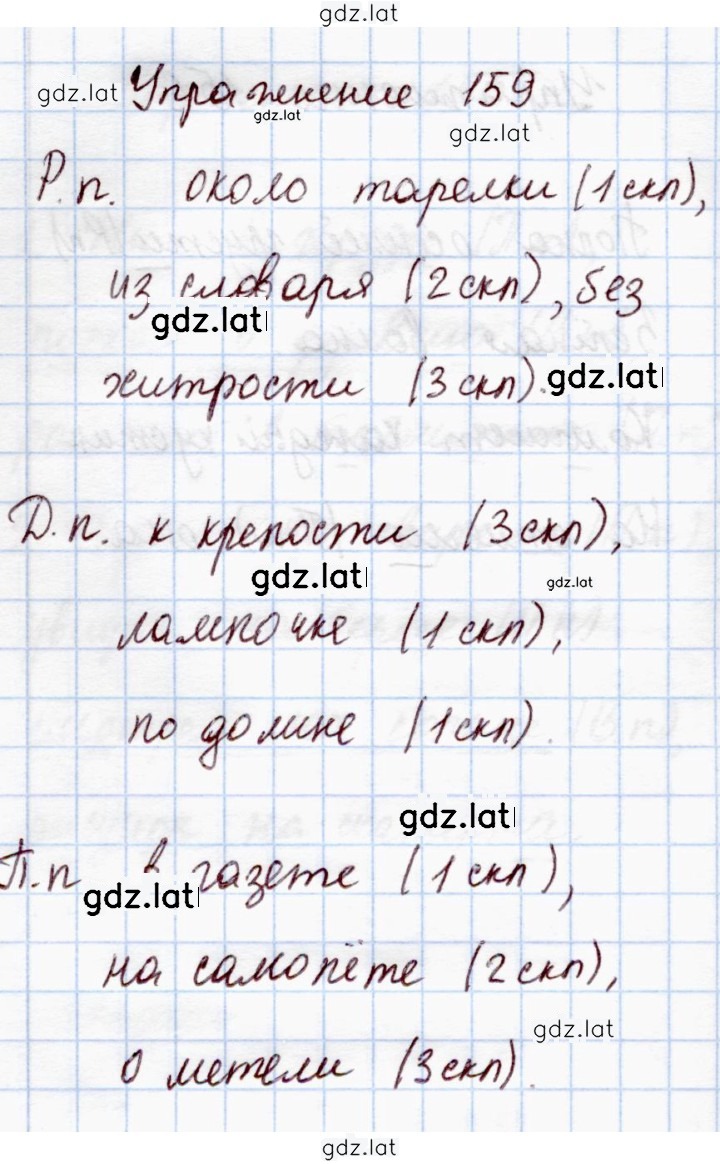 gdz.lat
gdz.lat Упражнение 159
gdz.lat
gdz.lat
Р.п. около тарелки (1 скл),
из словаря (2 скл), без
gdz.lat
хитрости (3 скл). gdz.lat
Д.п. к крепости (3 скл),
gdz.lat gdz.lat
лампочке (1 скл),
по долине (1 скл).
gdz.lat
П.п в газете (1 скл),
gdz.lat
на самолёте (2 скл),
gdz.lat
о метели (3 скл).
gdz.lat